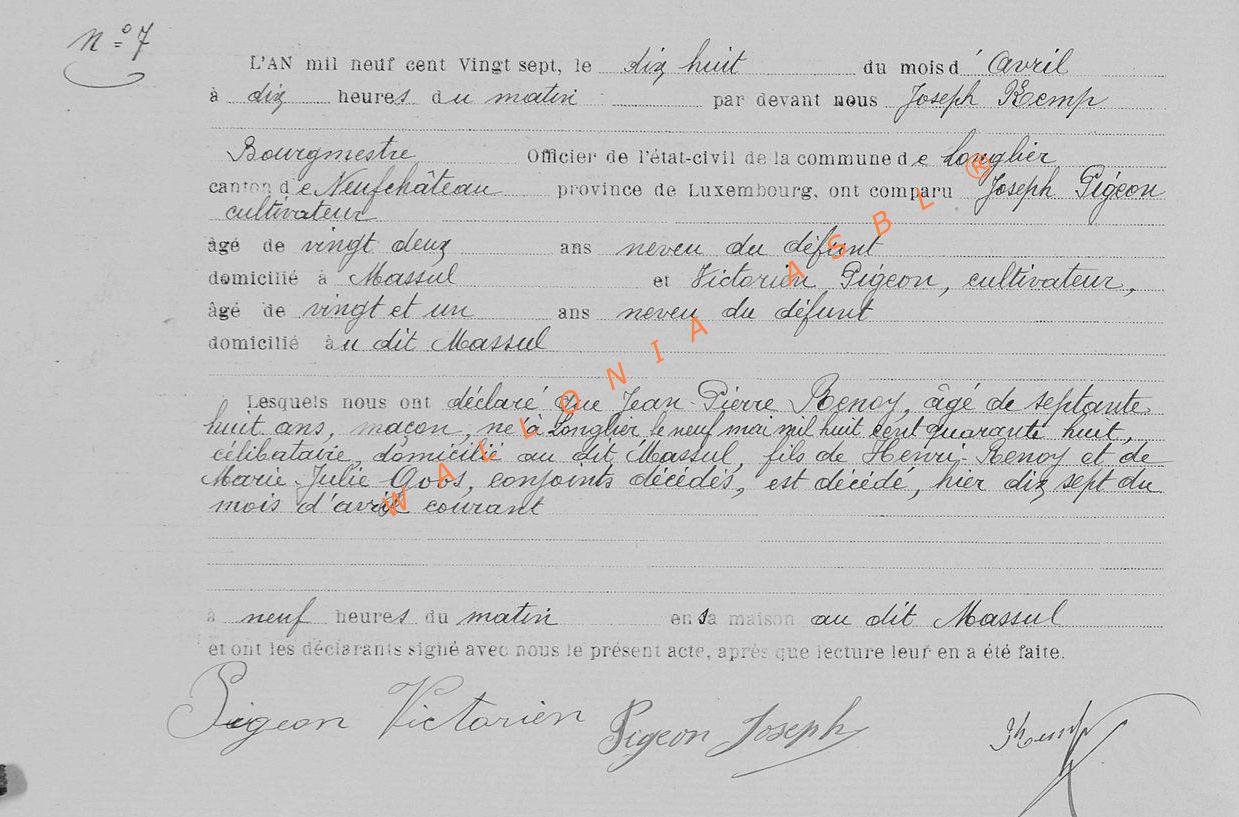 n° 7
L'AN mil neuf cent Vingt sept, le dix huit du mois d'Avril
à dix heures du matin par devant nous Joseph Kemp
Bourgmestre Officier de l'état-civil de la commune de Longlier
canton de Neufchâteau province de Luxembourg, ont comparu Joseph Pigeon
cultivateur
âgé de vingt deux ans neveu du défunt
domicilié à Massul et Victorien Pigeon, cultivateur,
âgé de vingt et un ans neveu du défunt
domicilié au dit Massul
Lesquels nous ont déclaré que Jean-Pierre Renoy, âgé de septante
huit ans, maçon, né à Longlier le neuf mai mil huit cent quarante huit,
célibataire, domicilié au dit Massul, fils de Henri Renoy et de
Marie-Julie Goos, conjoints décédés, est décédé, hier dix sept du
mois d'avril courant
à neuf heures du matin en sa maison au dit Massul
et ont les déclarants signé avec nous le présent acte, après que lecture leur en a été faite.
Pigeon Victorien Pigeon Joseph Kemp
WALLONIA ASBL ®